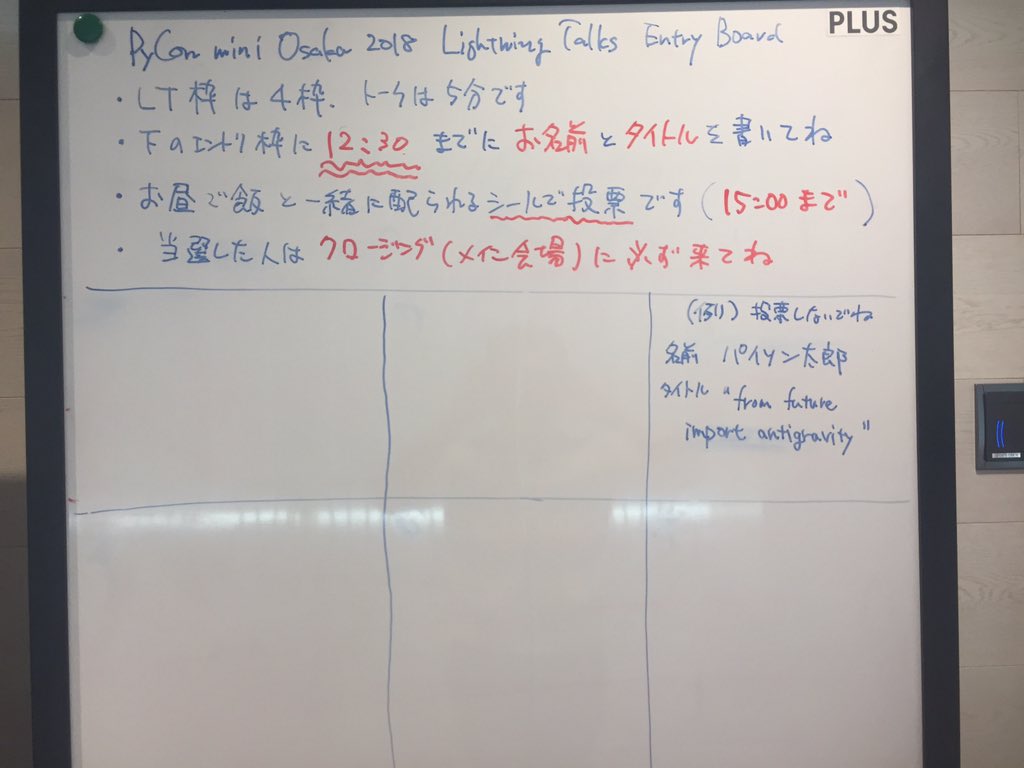 PLUS
PyCon mini Osaka 2018 Lightning Talks Entry Board
・LT枠は4枠. トークは5分です
・下のエントリ枠に12:30までにお名前とタイトルを書いてね
・お昼ご飯と一緒に配られるシールで投票です(15:00まで)
・当選した人はクロージング(メイン会場)に必ず来てね
(例)投票しないでね
名前 パイソン太郎
タイトル "from future
import antigravity"